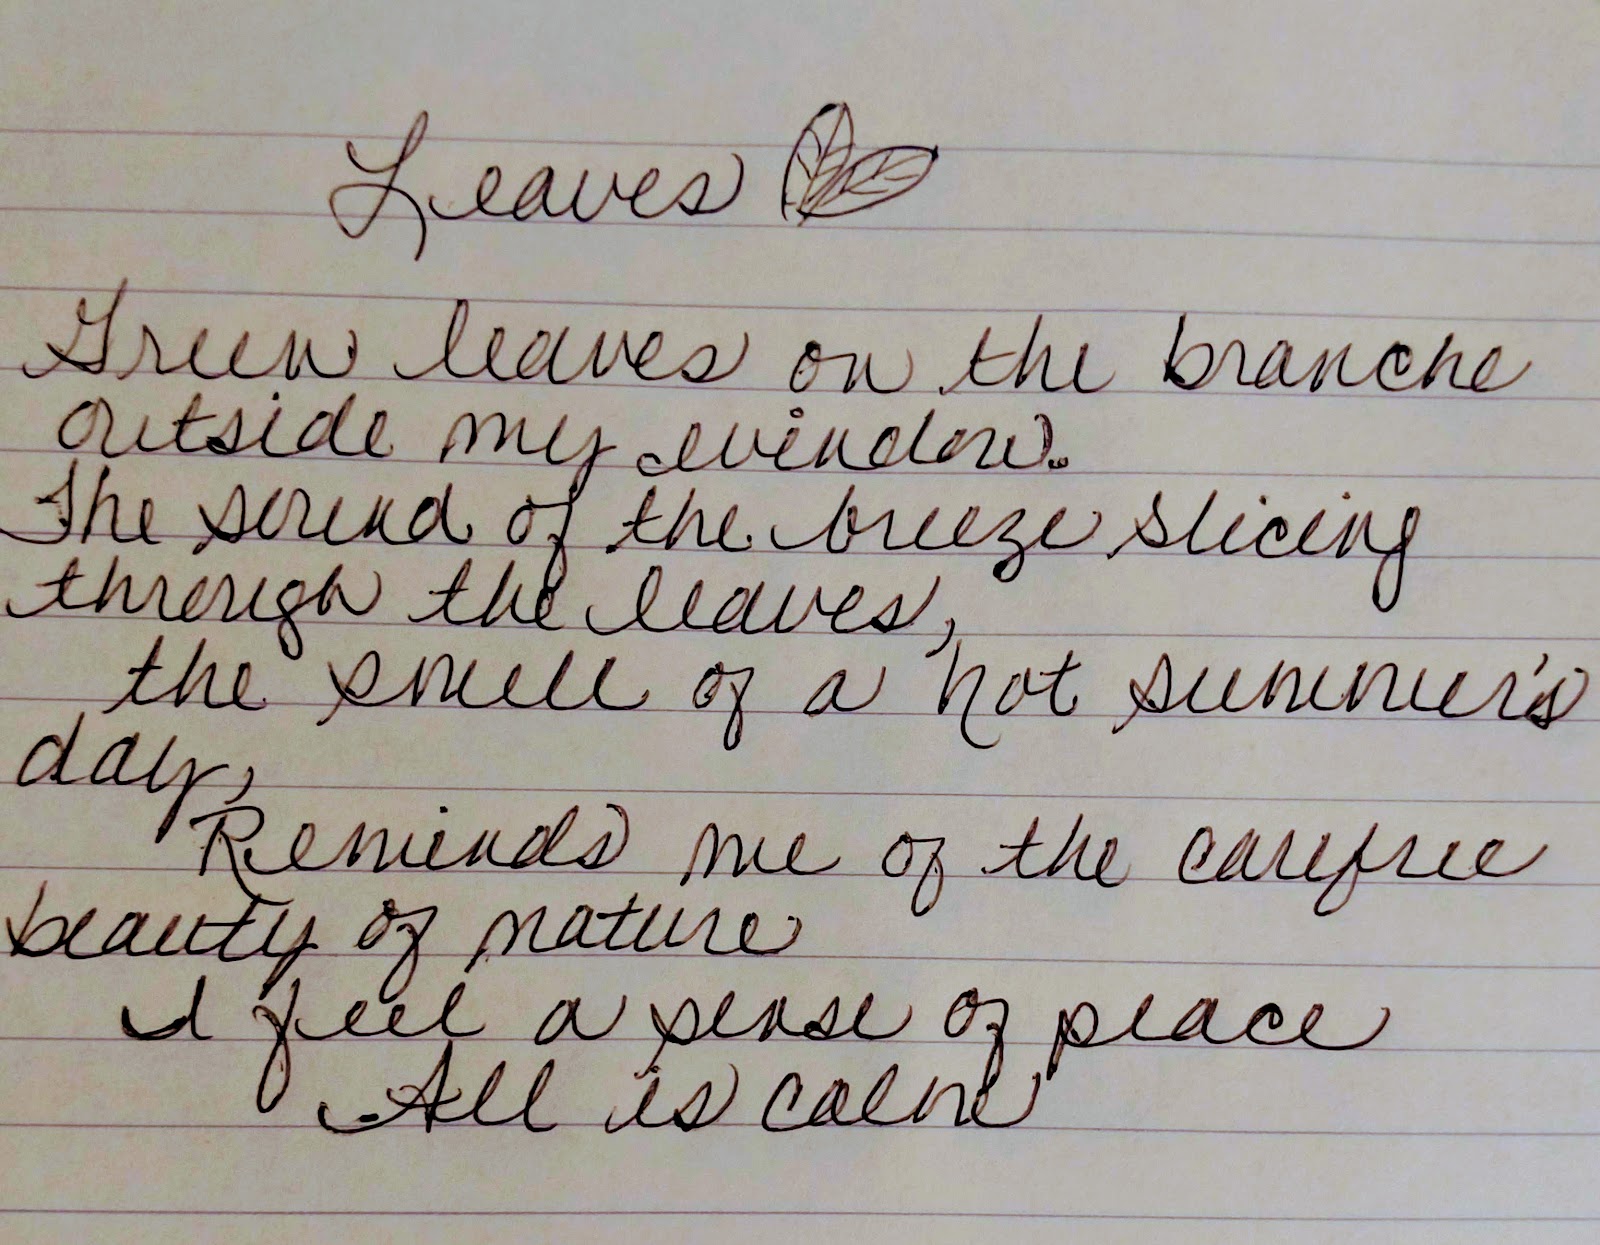 Leaves
Green leaves on the branche
outside my window.
The sound of the breeze slicing
through the leaves,
the smell of a hot summer's
day,
Reminds me of the carefree
beauty of nature
I feel a sense of peace
All is calm